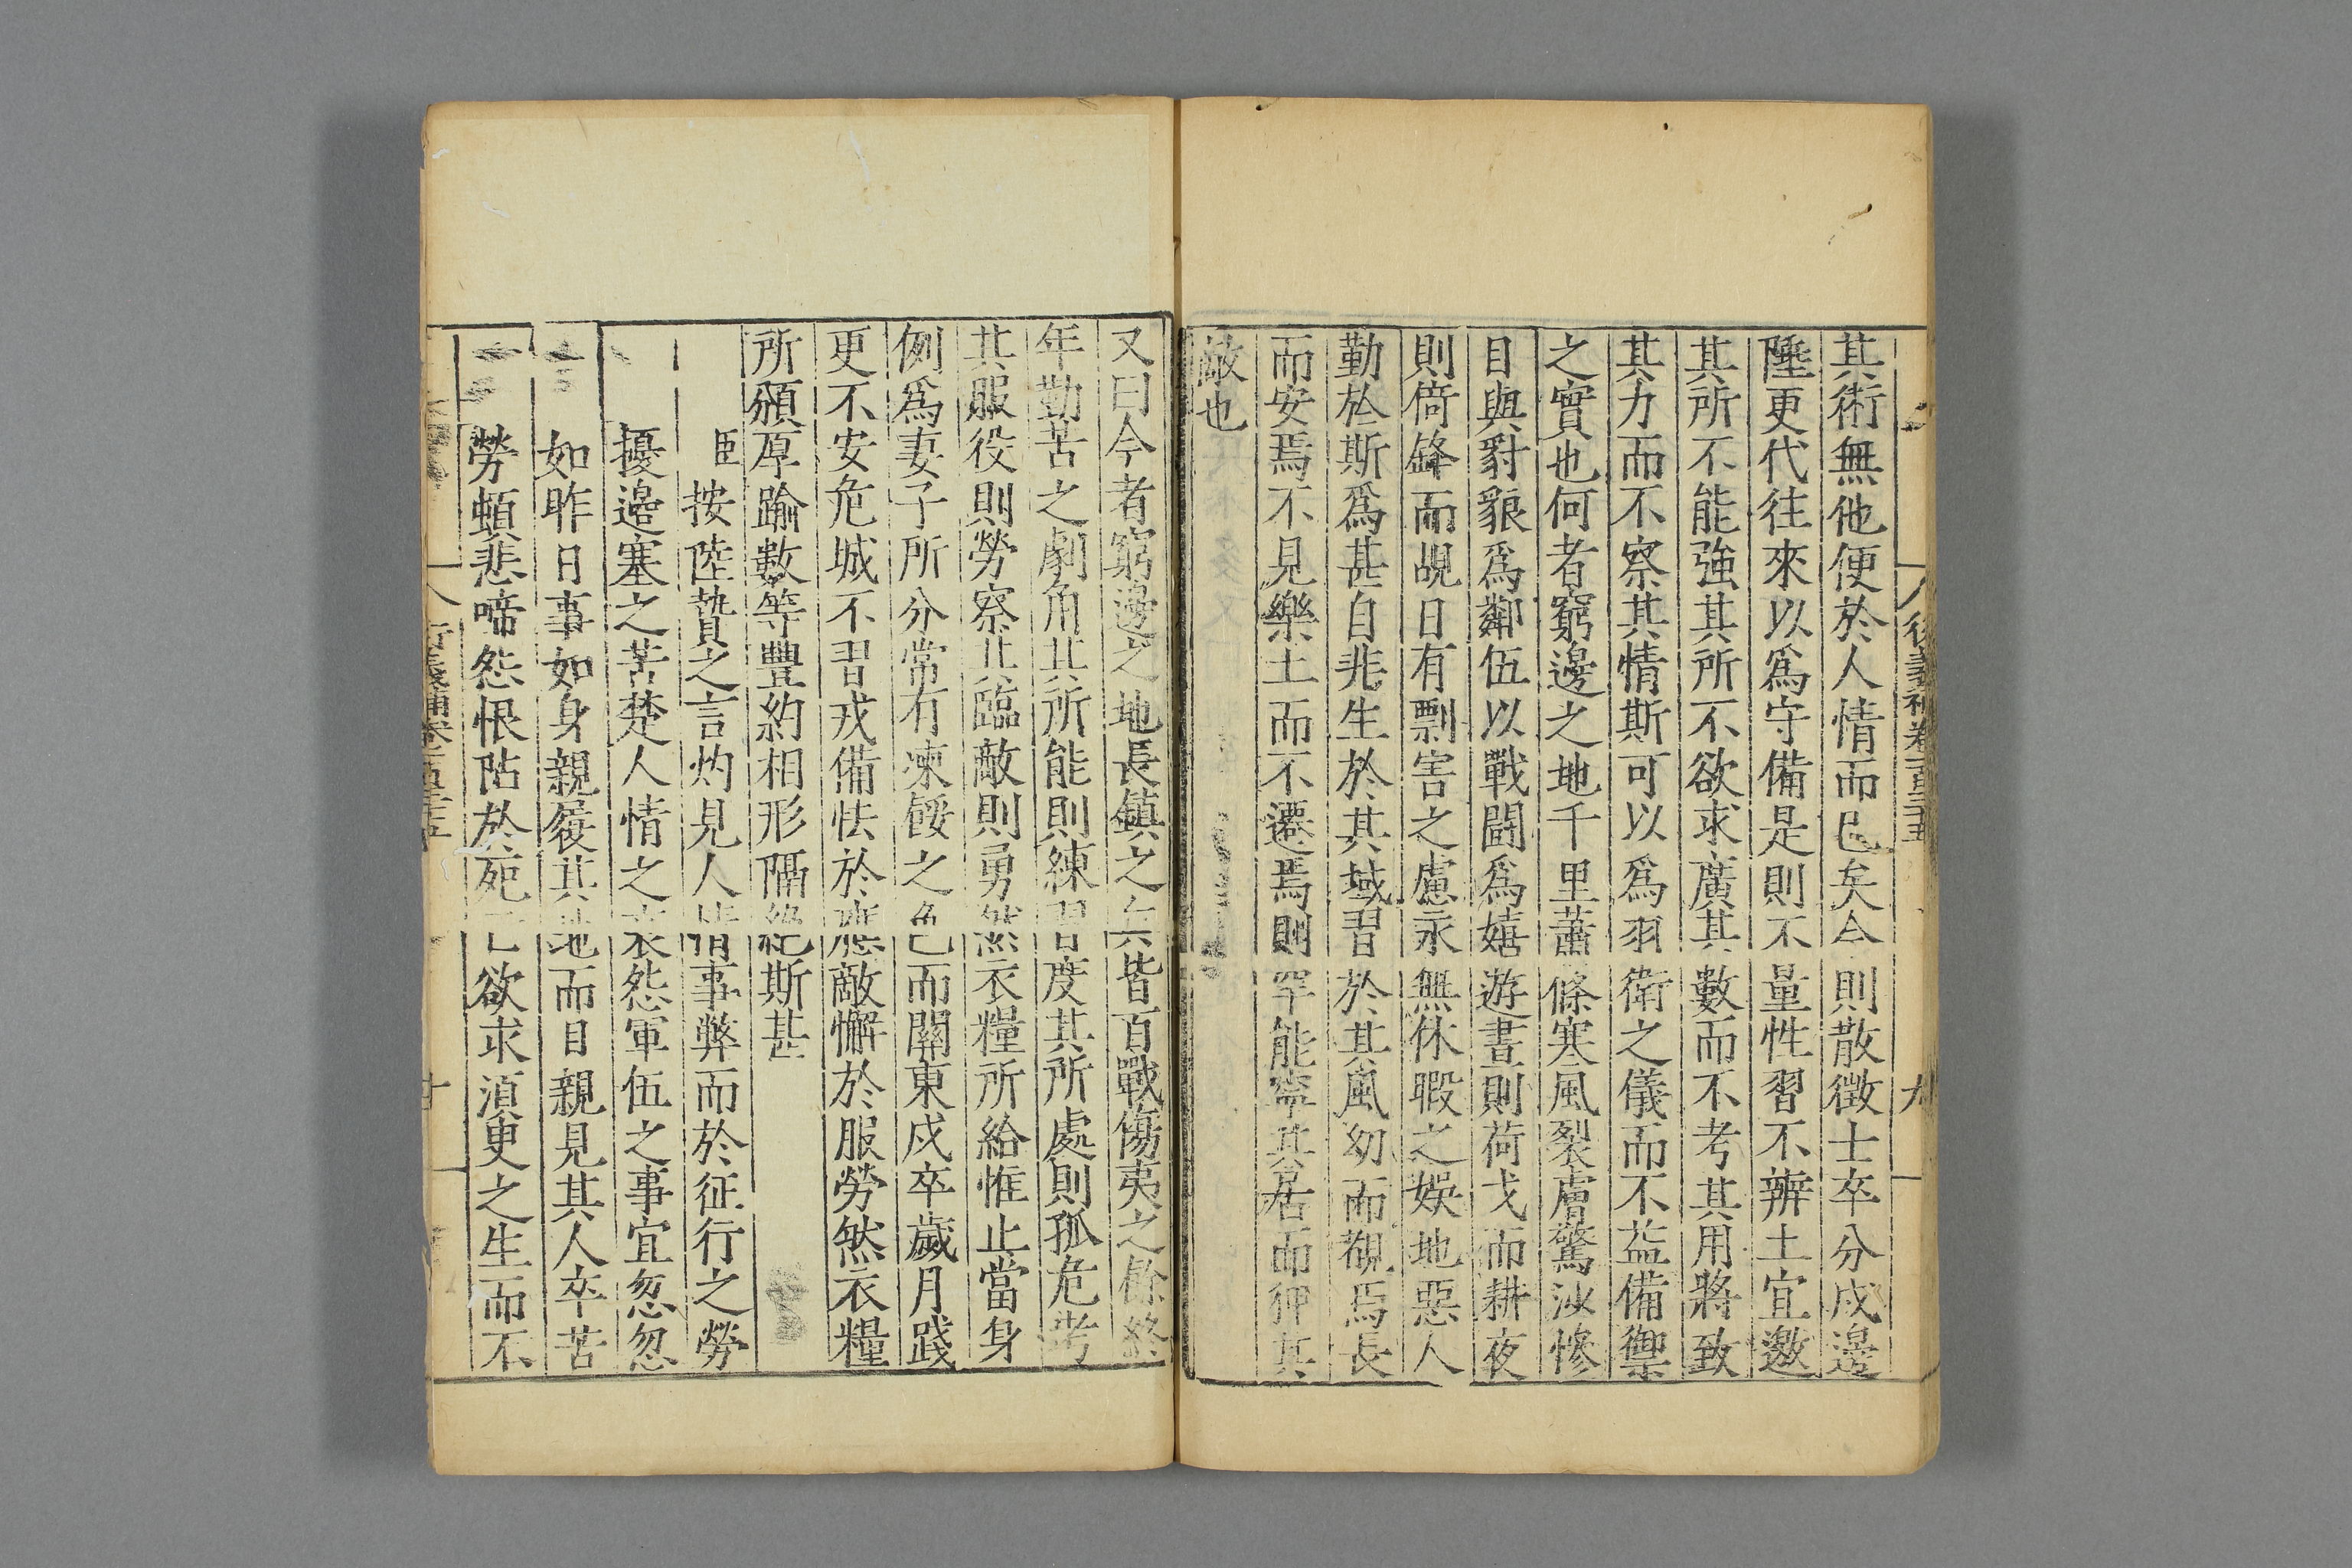 其術無他便於人情而已矣今則散徵士卒分戍邊
陲更代往來以爲守備是則不量性習不辨土宜邀
其所不能強其所不欲求廣其數而不考其用將致
其力而不察其情斯可以爲羽衛之儀而不益備禦
之實也何者窮邊之地千里蕭條寒風裂膚驚沙慘
目與豺狼爲鄰伍以戰闘爲嬉遊晝則荷戈而耕夜
則倚鋒而覘日有剽害之慮永無休暇之娛地惡人
勤於斯爲甚自非生於其域習於其風幼而覩焉長
而安焉不見樂土而不遷焉則罕能寧其居而狎其
敵也
又曰今者窮邊之地長鎮之兵皆百戰傷夷之餘終
年勤苦之劇角其所能則練習度其所處則孤危考
其服役則勞察其臨敵則勇然衣糧所給惟止當身
例爲妻子所分常有凍餒之色而關東戍卒歲月踐
更不安危城不習戎備怯於應敵懈於服勞然衣糧
所頒厚踰數等豐約相形隔絶斯甚
臣按陸贄之言灼見人情事弊而於征行之勞
擾邉塞之苦楚人情之哀怨軍伍之事宜忽忽
如昨日事如身親履其地而目親見其人卒苦
勞頓悲啼怨恨阽於死亡欲求湏臾之生而不